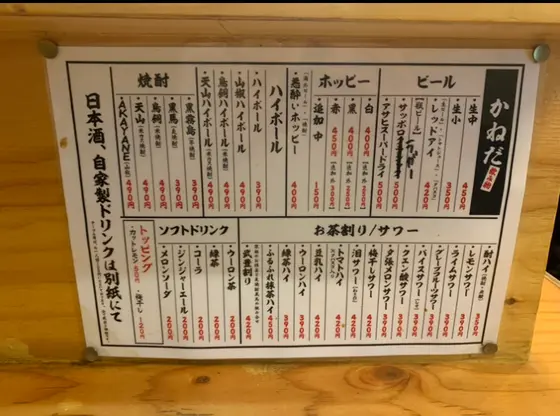 かねだ
飲み物
ビール
・生中 450円
・生小 350円
・レッドアイ 420円
【瓶ビール】
・サッポロ 500円
・アサヒスーパードライ 500円
ホッピー
・白 400円
・黒 400円
・赤 450円
・追加 中 150円
・悪酔いホッピー 400円
ハイボール
・ハイボール 390円
・山椒ハイボール 490円
・鳥飼ハイボール 490円
・天山ハイボール 490円
焼酎
・黒霧島 390円
・黒馬 390円
・鳥飼 490円
・天山 490円
・AKAYANE 490円
お茶割り/サワー
・酎ハイ 350円
・レモンサワー 390円
・ライムサワー 390円
・グレープフルーツサワー 390円
・バイスサワー 390円
・クエン酸サワー 390円
・夕張メロンサワー 390円
・梅干しサワー 420円
・泪サワー 420円
・トマトハイ 420円
・豆乳ハイ 420円
・ウーロンハイ 390円
・緑茶ハイ 390円
・ふるふれ抹茶ハイ 450円
・武蔵割り 420円
ソフトドリンク
・ウーロン茶 200円
・緑茶 200円
・コーラ 200円
・ジンジャーエール 200円
・メロンソーダ 200円
トッピング
・カットレモン 50円
・梅干し 120円
日本酒、自家製ドリンクは別紙にて